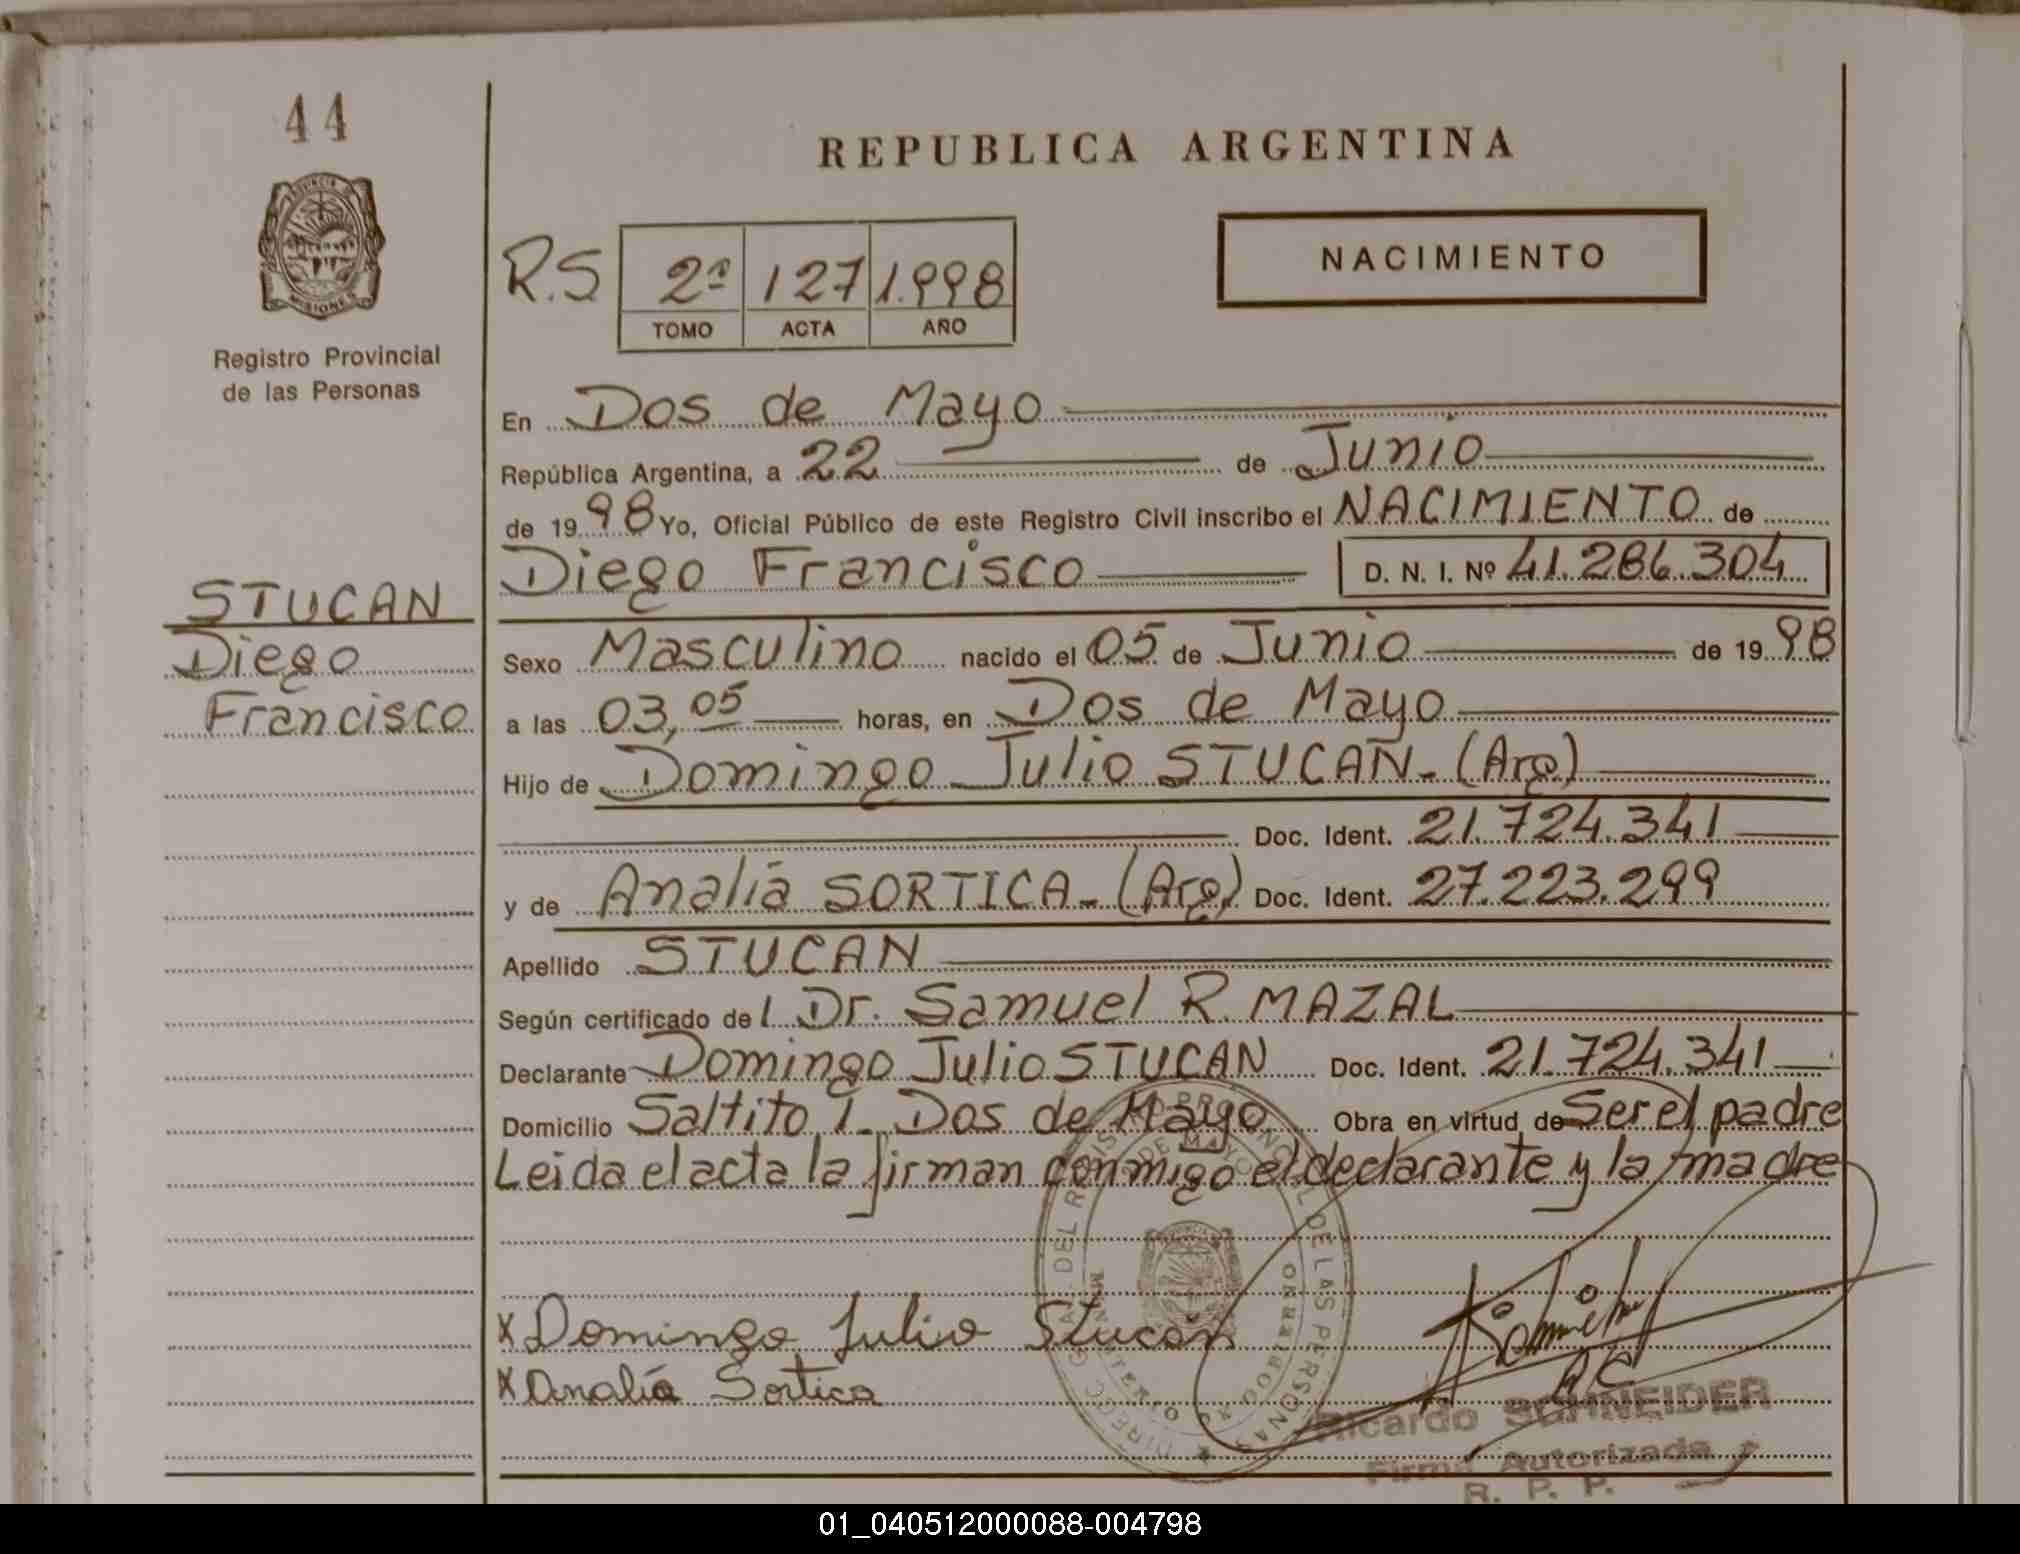 44
REPUBLICA ARGENTINA
PROVINCIA DE
MISIONES
Registro Provincial
de las Personas
R.S 2º 127 1.998
TOMO ACTA AÑO
NACIMIENTO
En Dos de Mayo
República Argentina, a 22 de Junio
de 1998 Yo, Oficial Público de este Registro Civil inscribo el NACIMIENTO de
Diego Francisco D. N. I. Nº 41.286.304
STUCAN
Diego
Francisco
Sexo Masculino nacido el 05 de Junio de 1998
a las 03,05 horas, en Dos de Mayo
Hijo de Domingo Julio STUCAN - (Arg)
Doc. Ident. 21.724.341
y de Analía SORTICA - (Arg) Doc. Ident. 27.223.299
Apellido STUCAN
Según certificado del Dr. Samuel R. MAZAL
Declarante Domingo Julio STUCAN Doc. Ident. 21.724.341
Domicilio Saltito 1 - Dos de Mayo Obra en virtud de Ser el padre
Leida el acta la firman conmigo el declarante y la madre
X Domingo Julio Stucan
X Analía Sortica
Ricardo SCHNEIDER
Firma Autorizada
R. P. P.
01_040512000088-004798